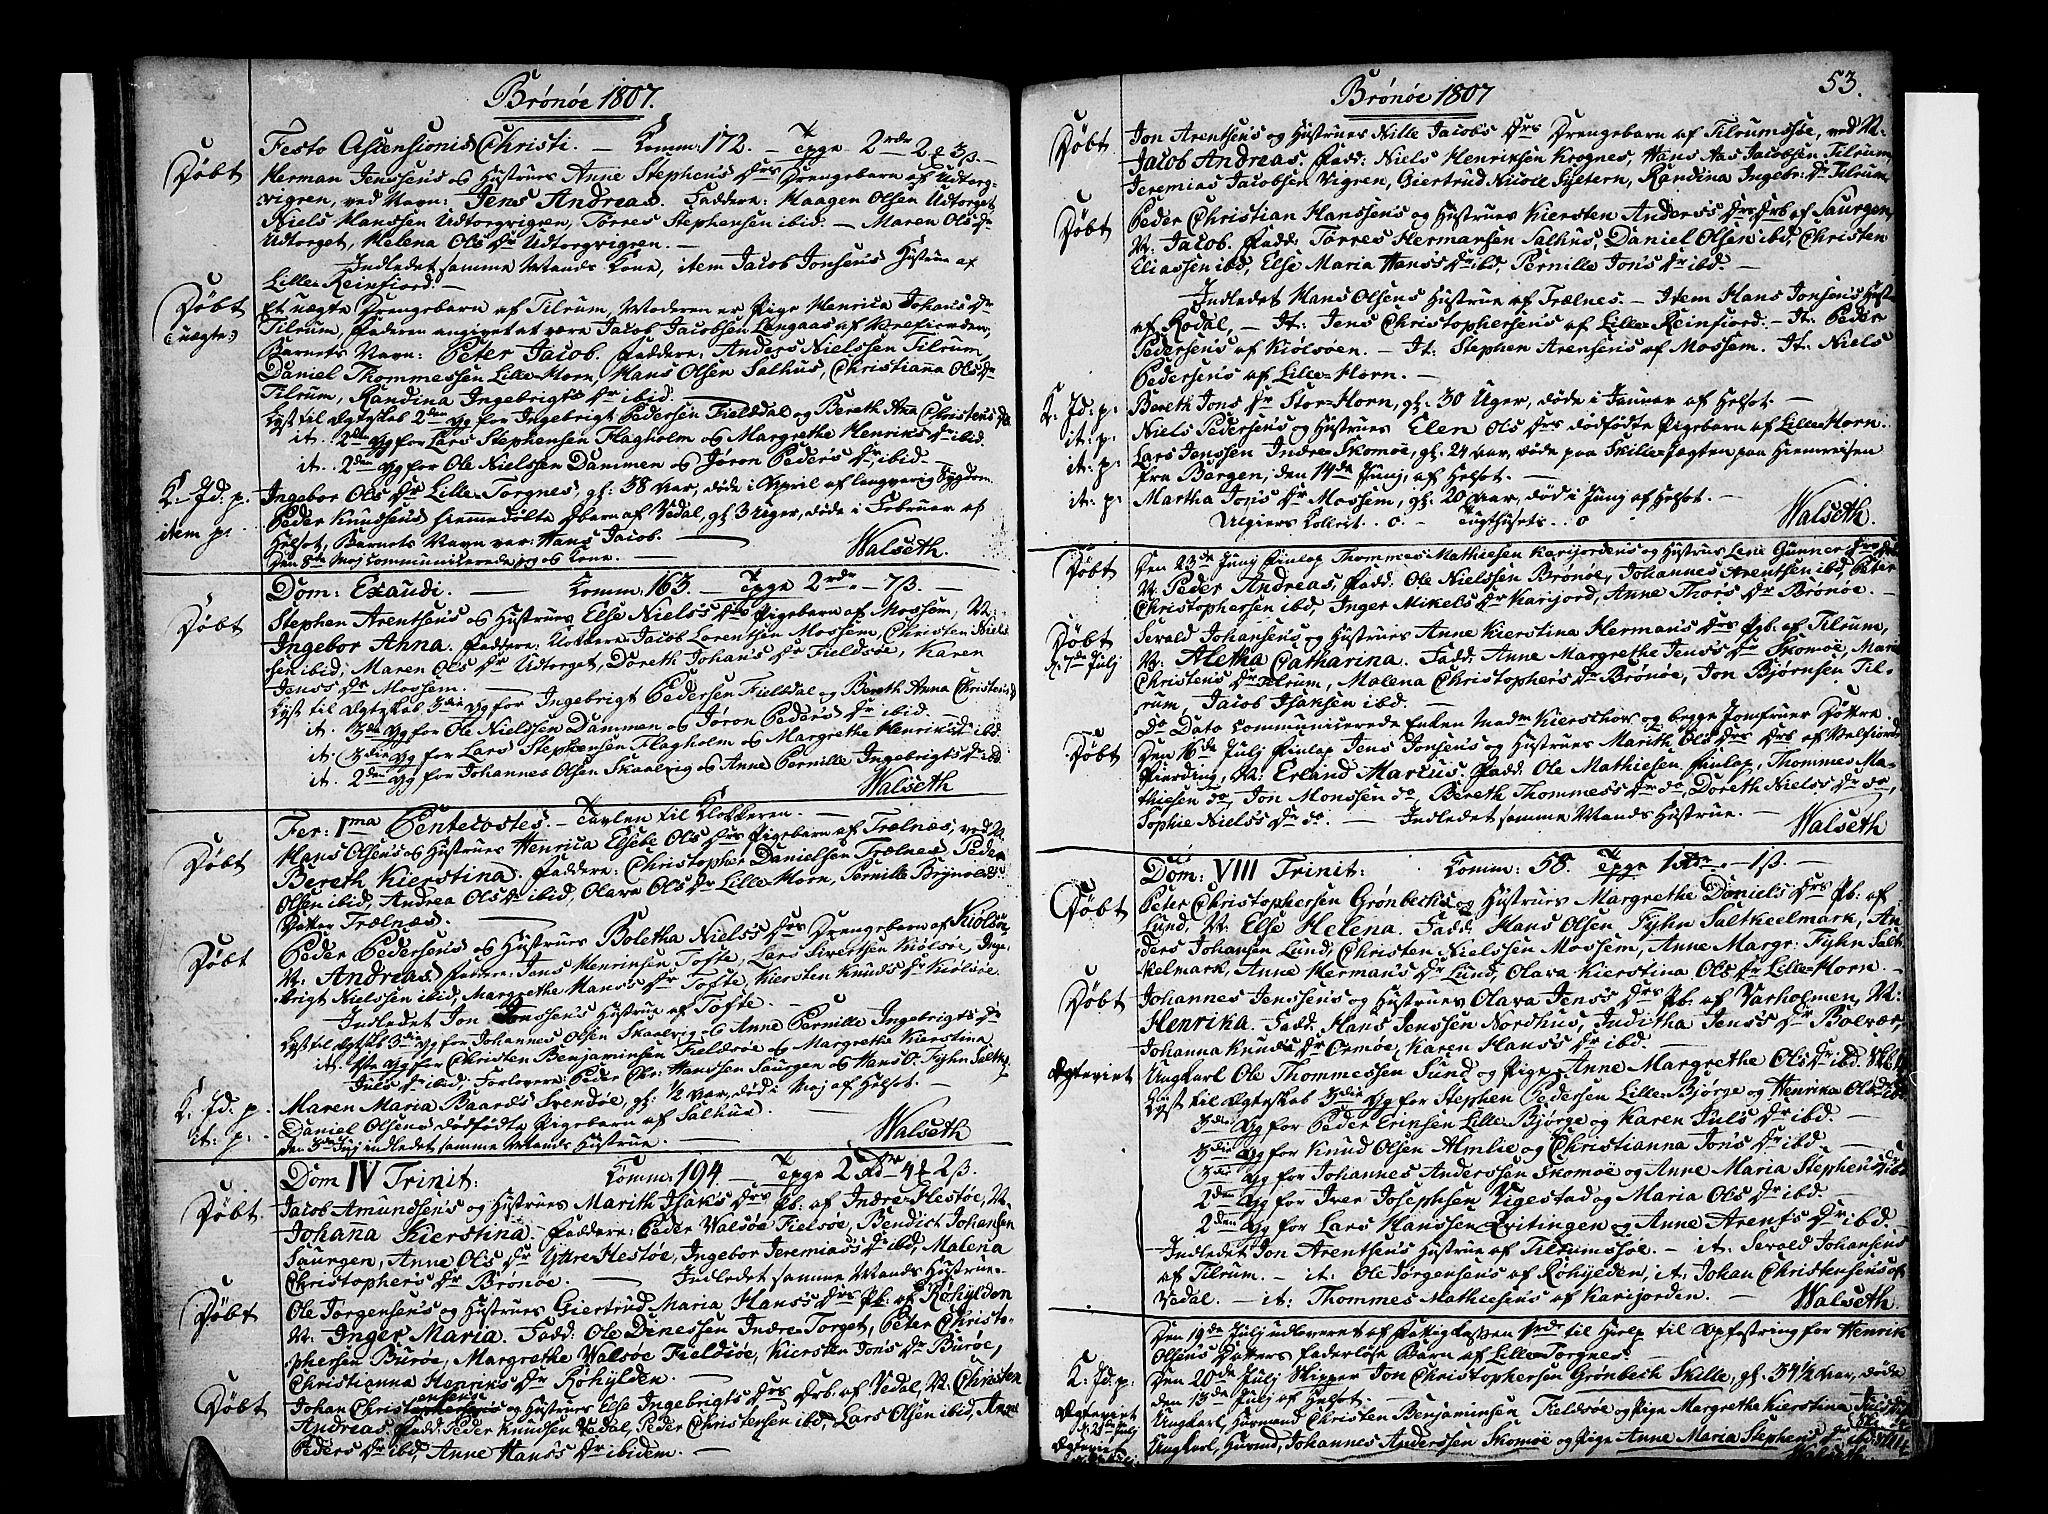 Brönöe 1807.
Festo Ascensionis Christi. — Komm: 172. — Tavle 2rdr 2 ₰ 3 ß —
Döbt
Herman Jenssens og Hustrues Anne Stephens Drs Drengebarn af Udtorg-
vigren, ved Navn: Jens Andreas. Faddere: Haagen Olsen Udtorget
Niels Hanssen Udtorgvigren, Törres Stephensen ibid. — Maren Ols Dr
Udtorget, Helena Ols Dr Udtorgvigren. —
Indledet samme Mands Kone, item Jacob Jonsens Hustrue af
Lille-Reinfiord. —
Döbt
(uægte:)
Et uægte Drengebarn af Tilrum, Moderen er Pige Henrica Johans Dr
Tilrum, Faderen angivet at være Jacob Jacobsen Langaas af Vefsen,
Barnets Navn: Peter Jacob. Faddere: Anders Nielssen Tilrum,
Daniel Thommessen Lille-Horn, Hans Olsen Salhus, Christiana Ols Dr
Tilrum, Randina Ingebrigts Dr ibid. —
Lyst til Ægteskab 2den Gg for Ingebrigt Pedersen Fieldal og Bereth Ana Christens Dr
it. 2den Gg for Lars Stephensen Flagholm og Margrethe Henriks Dr ibid.
it. 2den Gg for Ole Nielssen Dammen og Jöron Peders Dr ibid —
K: Jd: p:
Ingebor Ols Dr Lille-Torgnes, gl: 38 Aar, döde i April af langvarig Sygdom
item p:
Peder Knudsens hiemmedöbte Dbarn af Vedal, gl: 3 Uger, döde i Februar af
Helsot, Barnets Navn var: Hans Jacob. —
Den 8de Maj communicerede jeg og Kone. — Walseth.
Dom: Exaudi. — Komm: 163. — Tavle 2rdr — 7 ß —
Döbt
Stephen Arentsens og Hustrues Else Nielss Drs Pigebarn af Mossem, N:
Ingebor Anna. Faddere: Jacob Lorentsen Mossem, Christen Niels-
sen ibid, Maren Ols Dr Udtorget, Doreth Johans Dr Fieldsöe, Karen
Jenss Dr Mossem. —
Lyst til Ægteskab 3die Gg for Ingebrigt Pedersen Fieldal og Bereth Anna Christens D
it. 3die Gg for Ole Nielssen Dammen og Jöron Peders Dr ibid.
it. 3die Gg for Lars Stephensen Flagholm og Margrethe Henriks Dr ibid.
it. 2den Gg for Johannes Olsen Skaalvig og Anne Pernille Ingebrigts Dr ibid
Walseth
Fer: 1ma Pentecostes. — Tavlen til Klokkeren. —
Döbt
Hans Olsens og Hustrues Henrica Elsebe Ols Drs Pigebarn af Trælnæs, ved N.
Bereth Kierstina. Faddere: Christopher Danielsen Trælnes, Peder
Olsen ibid, Andrea Ols Dr ibid, Olava Ols Dr Lille-Horn, Pernille Brynolds
Datter Trælnæs. —
Döbt
Peder Pedersens og Hustrues Boletha Nielss Drs Drengebarn af Kiölsöe,
N: Andreas. Faddere: Jens Henriksen Tofte, Lars Sivertsen Kiölsöe, Inge-
brigt Nielssen ibid, Margrethe Hans's Dr Tofte, Kiersten Knuds Dr Kiölsöe
Indledet Jon Jonssens Hustrue af Tofte. —
Lyst til Ægteskab 3die Gg for Johannes Olsen Skaalvig og Anne Pernille Ingebrigts Dr
it. 1ste Gg for Christen Benjaminsen Fieldsöe og Margrethe Kierstina
Juls Dr ibid, Forlovere: Peder Chr: Hanssen Saurgen og Hans O. Fyhn Salth:
K: Jd. p.
Maren Maria Baards Svendöe, gl: 1/2 Aar, död i Maj af Helsot. —
it: p:
Daniel Olsens dödfödte Pigebarn af Salhus. —
Den 3die Junj indledet samme Mands Hustrue. — Walseth
Dom IV Trinit: Komm: 194. — Tavle 2 rdr 4 ₰ 2 ß.
Döbt
Jacob Amundsens og Hustrues Marith Isaks Drs Pb: af Indre-Hestöe, N
Johanna Kierstina. Faddere: Peder Walsöe Fielsöe, Bendict Johansen
Saurgen, Anne Ols Dr Yttre-Hestöe, Ingebor Jeremias's Dr ibid, Malena
Christophers Dr Brönöe. — Indledet samme Mands Hustrue.
Döbt
Ole Jorgensens og Hustrues Giertrud Maria Hans's Drs Pb: af Röhylden
N: Inger Maria. Fadd: Ole Dinessen Indre-Torget, Peter Christo-
phersen Buröe, Margrethe Walsöe Fieldsöe, Kiersten Jons Dr Buröe,
Christianna Henriks Dr Röhylden. —
Döbt
Johan Christensens og Hustrues Else Ingebrigts Drs Drb. af Vedal, N: Christen
Andreas. Fadd: Peder Knudsen Vedal, Peder Christensen ibid, Lars Olsen ibid, Anne
Peders Dr ibd, Anne Hans's Dr ibidem. —
53.
Brönöe 1807
Döbt
Jon Arentsens og Hustrues Nille Jacobs Drs Drengebarn af Tilrumssöe, ved N.
Jacob Andreas. Fadd: Niels Henriksen Krognes, Hans Aas Jacobsen Tilrum,
Jeremias Jacobsen Vigren, Giertrud Nicole Syltern, Randina Ingebr: Dr Tilrum
Döbt
Peder Christian Hanssens og Hustrues Kiersten Anderss Drs Drb. af Saurgen,
N. Jacob. Fadd: Törres Hermansen Salhus, Daniel Olsen ibd, Christen
Eliassen ibd, Else Maria Hans's Dr ibd, Pernille Jons Dr ibd. —
Indledet Hans Olsens Hustrue af Trælnes. — Item Hans Jonsens Hust
af Rodal, — It: Jens Christophersens af Lille-Reinfiord. — It: Peder
Pedersens af Kiölsöen. — It: Stephen Arensens af Mossem. It: Niels
Pedersens af Lille-Horn. —
K: Jd: p:
Bereth Jons Dr Stor-Horn, gl: 30 Uger, döde i Januar af Helsot. —
it: p:
Niels Pedersens og Hustrues Elen Ols Drs dödfödte Pigebarn af Lille-Horn.
it: p:
Lars Jenssen Indre-Skomöe, gl: 24 Aar, döde paa Skille-Jægten paa Hiemreisen
fra Bergen, den 14de Junj, af Helsot. —
it: p:
Martha Jons Dr Mossem, gl: 20 Aar, död i Junj af Helsot. —
Algiers Collect . . 0 — Tugthusets . . 0 Walseth.
Döbt
Den 23de Junj Finlap Thommes Mathiesen Karijordens og Hustrues Lene Gunners Drs
N: Peder Andreas, Fadd: Ole Nielssen Brönöe, Johannes Arentsen ibd, Peter
Christophersen ibd, Inger Mikels Dr Karijord, Anne Thors Dr Brönöe. —
Döbt
d. 7de Julj
Sevald Johansens og Hustrues Anne Kierstina Hermans Drs Pgb. af Tilrum,
N: Aletha Catharina. Fadd: Anne Margrethe Jens's Dr Skomöe, Mari
Christens Dr Tilrum, Malena Christophers Dr Brönöe, Jon Björnsen Til-
rum, Jacob Isaksen ibd. —
Do Dato communicerede Enken Madm Kierschow og begge Jomfruer Döttre
Döbt
Den 16de Julj Finlap Jens Jonsens og Hustrues Marith Ols Drs Drb af Velfiords
Fierding, N: Erland Marcus. Fadd: Ole Mathiesen, Finlap, Thommes Ma-
thiesen do, Jon Monssen do, Bereth Thommess Dr do, Doreth Nielss Dr do,
Sophie Nielss Dr do. — Indledet samme Mands Hustrue. — Walseth
Dom: VIII Trinit: Komm: 58. Tavle 1 rdr — 1 ß —
Döbt
Peter Christophersen Grönbechs og Hustrues Margrethe Daniels Drs Pb: af
Lund, N: Else Helena. Fadd: Hans Olsen Fyhn Saltkeelmark, An-
ders Johansen Lund, Christen Nielssen Mossem, Anne Margr: Fyhn Salt-
kelmark, Anne Hermans Dr Lund, Olava Kierstina Ols Dr Lille-Horn. —
Döbt
Johannes Jenssens og Hustrues Olava Jens's Drs Pb. af Varholmen, N:
Henrika. Fadd: Hans Jenssen Nordhus, Inditha Jens's Dr Bolvær,
Johanna Knuds Dr Ormöe, Karen Hans's Dr ibd. —
Ægteviet
Ungkarl Ole Thommessen Sund og Pige Anne Margrethe Ols Dr ibd.
Lyst til Ægteskab 3die Gg for Stephen Pedersen Lille-Björge og Henrika Ols Dr ibd.
3die Gg for Peder Eriksen Lille-Björge og Karen Juls Dr ibd. —
3die Gg for Knud Olsen Almlie og Christianna Jons Dr ibd. —
3die Gg for Johannes Anderssen Skomöe og Anne Maria Stephens Dr ibd.
2den Gg for Iver Josephsen Tigestad og Maria Ols Dr ibd. —
2den Gg for Lars Hanssen Evitingen og Anne Arents Dr ibd. —
Indledet Jon Arentsens Hustrue af Tilrumssöe. — it: Sevald Johansens
af Tilrum. — it: Ole Jörgensens af Röhylden, it: Johan Christensens af
Vedal. — it: Thommes Mathiesens af Karijorden. — Walseth
Den 19de Julj udleveret af Fattigkassen 1rdr til Hielp til Opfostring for Henrik
Olsens Datters faderlöse Barn af Lille-Torgnes. —
K: Jd. p.
Den 20de Julj Skipper Jon Christophersen Grönbech Skille, gl: 34 1/2 Aar, döde
den 13de Julj af Helsot. —
Ægteviet
d. 25de Julj
Ungkarl, Huusmand Christen Benjaminsen Fieldsöe og Pige Margretha Kierstina Juls
Ægteviet
Ungkarl, Huusmd, Johannes Anderssen Skomöe og Pige Anne Maria Stephens Dr ibd
Walseth